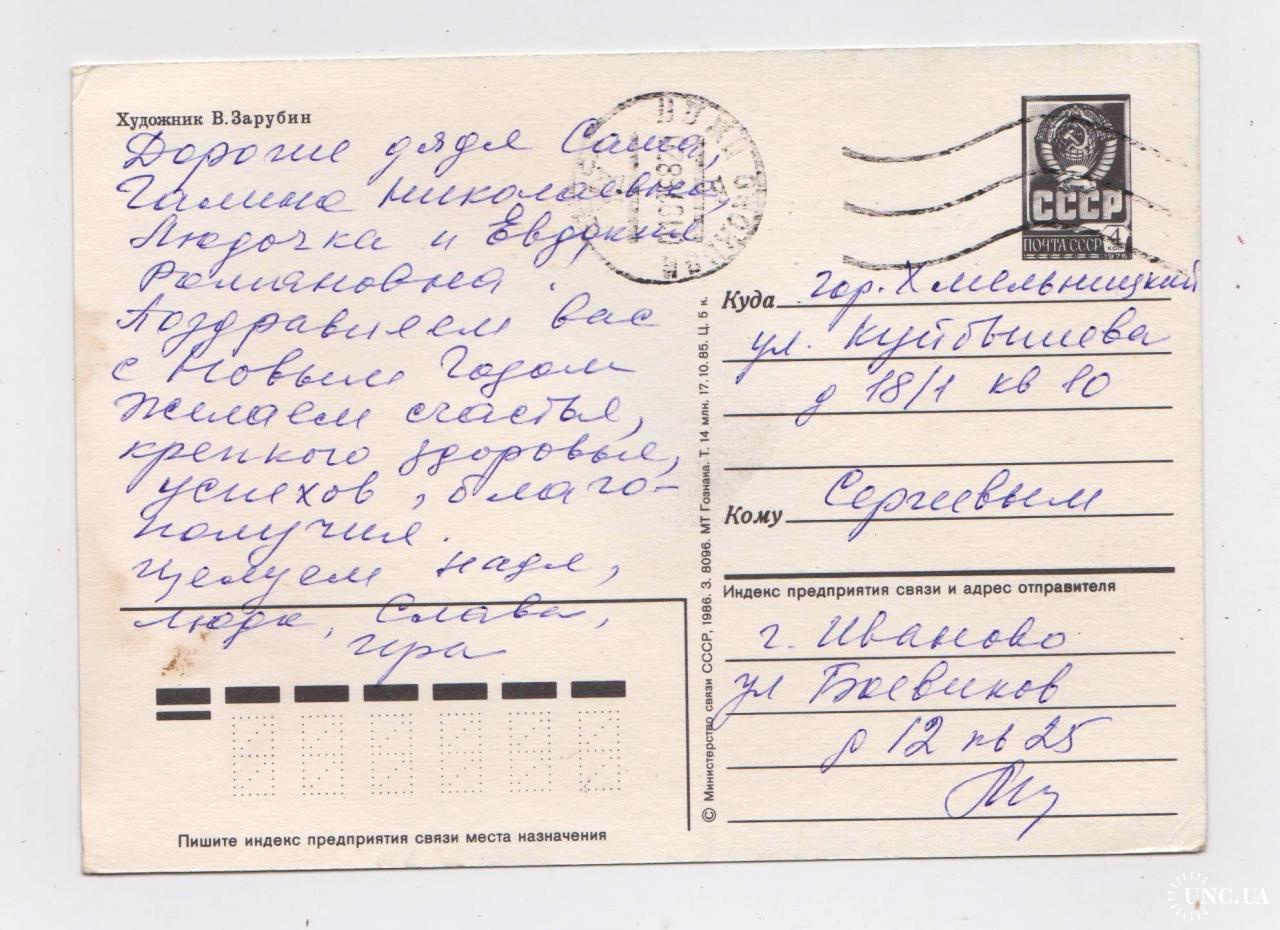 Художник В.Зарубин
Дорогие дядя Саша,
Галина Николаевна,
Людочка и Евдокия
Романовна.
Поздравляем вас
с Новым Годом
Желаем счастья,
крепкого здоровья,
успехов, благо-
получия.
Целуем Надя,
Люда, Слава,
Ира
Пишите индекс предприятия связи места назначения
© Министерство связи СССР, 1986. З. 8096. МТ Гознака. Т. 14 млн. 17.10.85. Ц. 5 к.
СССР
ПОЧТА СССР 4 коп
1976
Куда гор. Хмельницкий
ул. Куйбышева
д 18/1 кв 10
Кому Сергиевым
Индекс предприятия связи и адрес отправителя
г. Иваново
ул Боевиков
д 12 кв 25
UNC.UA